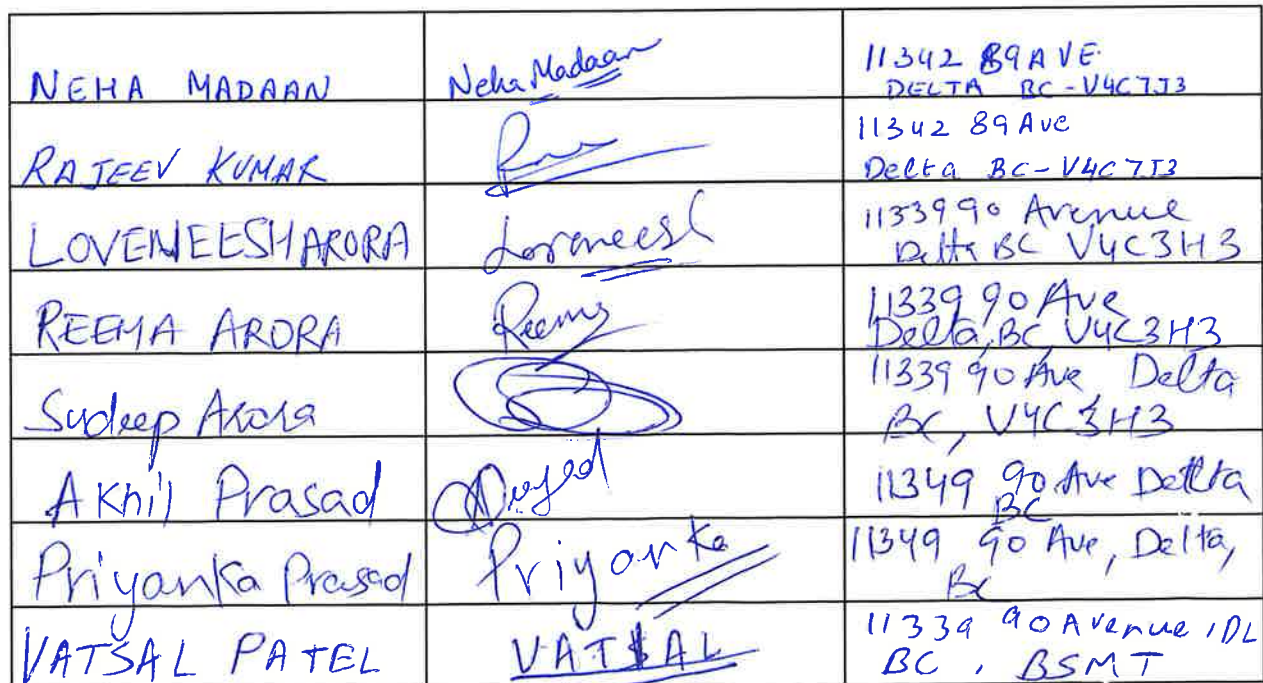 NEHA MADAAN
Neha Madaan
11342 89 AVE.
DELTA BC - V4C7J3
RAJEEV KUMAR
11342 89 Ave
Delta BC - V4C 7J3
LOVENEESH ARORA
Loveneesh
11339 90 Avenue
Delta BC V4C3H3
REEMA ARORA
Reema
11339 90 Ave
Delta, BC, V4C3H3
Sudeep Arora
11339 90 Ave, Delta
BC, V4C 3H3
Akhil Prasad
11349 90 Ave Delta
BC
Priyanka Prasad
Priyanka
11349 90 Ave, Delta,
BC
VATSAL PATEL
VATSAL
11339 90 Avenue, DL
BC, BSMT